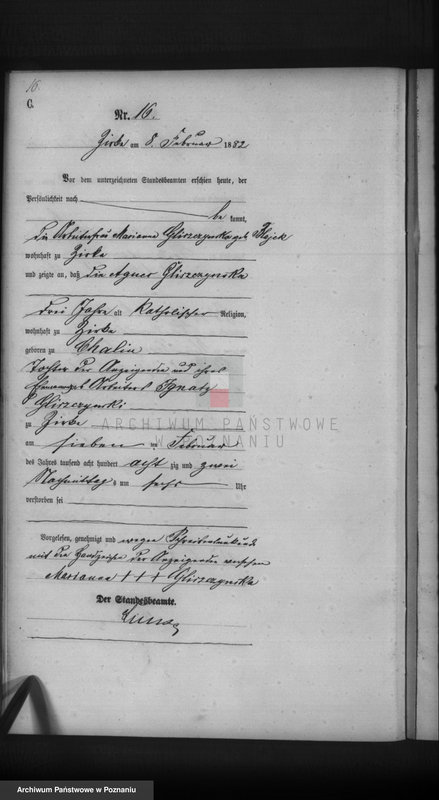 16.
C.
Nr. 16.
Zirke am 8. Februar 1882
Vor dem unterzeichneten Standesbeamten erschien heute, der
Persönlichkeit nach
be kannt,
die Arbeiterfrau Marianna Gliszczynska geb.
wohnhaft zu Zirke
und zeigte an, daß die Agnes Gliszczynska
drei Jahre alt katholischer Religion,
wohnhaft zu Zirke
geboren zu Chalin
Tochter der Anzeigende und ihres
Ehemannes Arbeiters Ignatz
Gliszczynski
zu Zirke
am sieben ten Februar
des Jahres tausend acht hundert acht zig und zwei
Nachmittags um sechs Uhr
verstorben sei
Vorgelesen, genehmigt und wegen Schreibensunkunde
mit den Handzeichen der Anzeigende versehen
Marianna +++ Gliszczynska
Der Standesbeamte.
ARCHIWUM PAŃSTWOWE
W POZNANIU
Archiwum Państwowe w Poznaniu